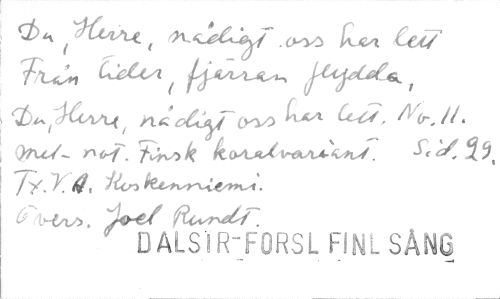 Du, Herre, nådigt oss har lett
Från tider, fjärran flydda,
Du, Herre, nådigt oss har lett. No. 11.
mel- not. Finsk koralvariant. Sid. 29.
Tx. V. A. Koskenniemi.
Övers. Joel Rundt.
DALSIR-FORSL FINL SÅNG